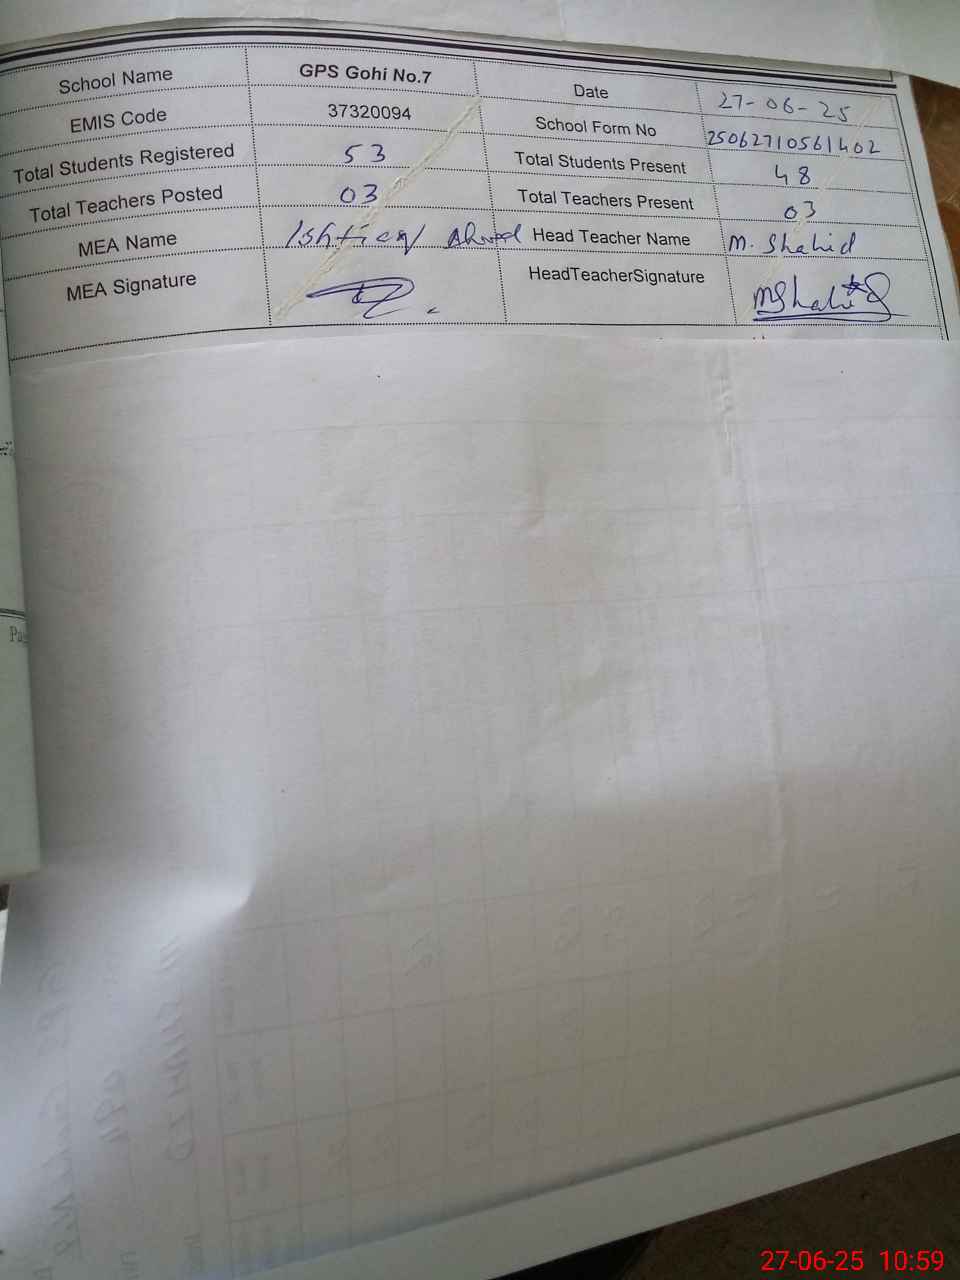 School Name GPS Gohi No.7 Date 27-06-25
EMIS Code 37320094 School Form No 25062710561402
Total Students Registered 53 Total Students Present 48
Total Teachers Posted 03 Total Teachers Present 03
MEA Name Ishtiaq Ahmad Head Teacher Name M. Shahid
MEA Signature HeadTeacherSignature MShahid
27-06-25 10:59